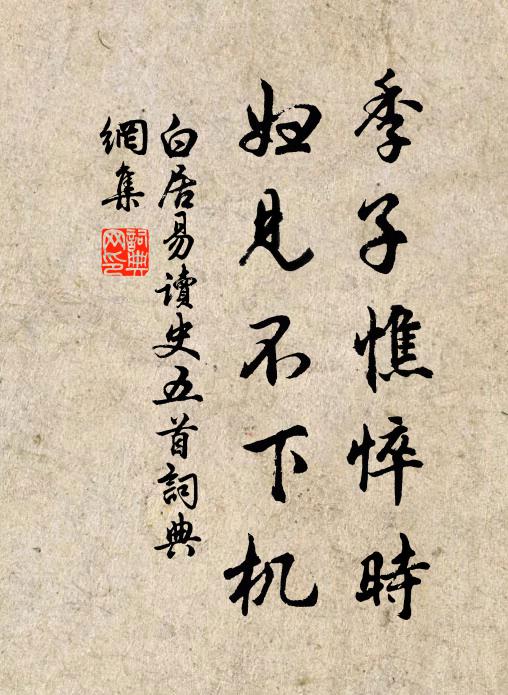 季子憔悴時
妇見不下机
白居易讀史五首詞典
網集
詞典网印